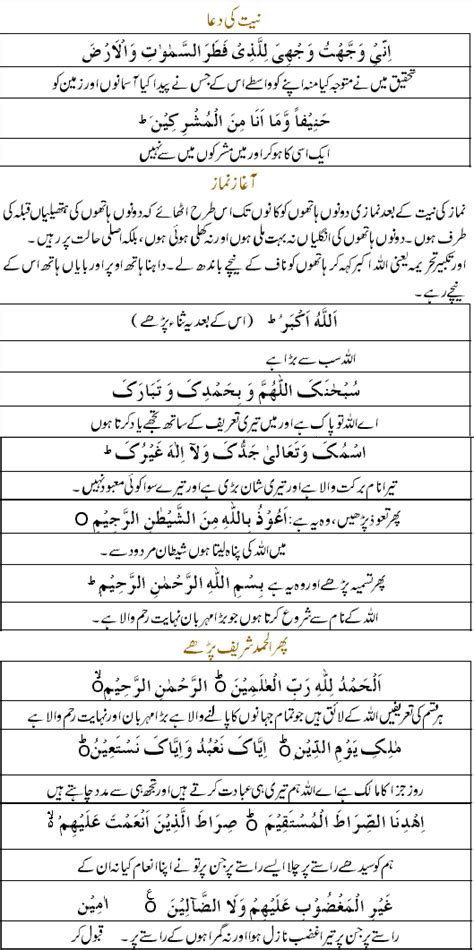 نیت کی دعا
اِنِّیْ وَجَّهْتُ وَجْهِیَ لِلَّذِیْ فَطَرَ السَّمٰوٰتِ وَالْاَرْضَ
تحقیق میں نے متوجہ کیا منہ اپنے کو واسطے اس کے جس نے پیدا کیا آسمانوں اور زمین کو
حَنِیْفاً وَّمَا اَنَا مِنَ الْمُشْرِکِیْنَ ؕ
ایک اسی کا ہو کر اور میں مشرکوں میں سے نہیں
آغاز نماز
نماز کی نیت کے بعد نمازی دونوں ہاتھوں کو کانوں تک اس طرح اٹھائے کہ دونوں ہاتھوں کی ہتھیلیاں قبلہ کی
طرف ہوں۔ دونوں ہاتھوں کی انگلیاں نہ بہت ملی ہوں اور نہ کھلی ہوئی ہوں، بلکہ اصلی حالت پر رہیں۔
اور تکبیر تحریمہ یعنی اللہ اکبر کہہ کر ہاتھوں کو ناف کے نیچے باندھ لے۔ داہنا ہاتھ اوپر اور بایاں ہاتھ اس کے
نیچے رہے۔
اَللّٰهُ اَکْبَرُ ؕ (اس کے بعد یہ ثناء پڑھے)
اللہ سب سے بڑا ہے
سُبْحٰنَکَ اللّٰهُمَّ وَ بِحَمْدِکَ وَ تَبَارَکَ
اے اللہ تو پاک ہے اور میں تیری تعریف کے ساتھ تجھے یاد کرتا ہوں
اسْمُکَ وَتَعَالیٰ جَدُّکَ وَلَآ اِلٰهَ غَیْرُکَ ؕ
تیرا نام برکت والا ہے اور تیری شان بڑی ہے اور تیرے سوا کوئی معبود نہیں۔
پھر تعوذ پڑھیں، وہ یہ ہے: اَعُوْذُ بِاللّٰهِ مِنَ الشَّیْطٰنِ الرَّجِیْمِ ○
میں اللہ کی پناہ لیتا ہوں شیطان مردود سے۔
پھر تسمیہ پڑھے اور وہ یہ ہے بِسْمِ اللّٰهِ الرَّحْمٰنِ الرَّحِیْمِ ؕ
اللہ کے نام سے شروع کرتا ہوں جو بڑا مہربان نہایت رحم والا ہے۔
پھر الحمد شریف پڑھے
اَلْحَمْدُ لِلّٰهِ رَبِّ الْعٰلَمِیْنَ ○ؕ الرَّحْمٰنِ الرَّحِیْمِ ○ۙ
ہر قسم کی تعریفیں اللہ کے لائق ہیں جو تمام جہانوں کا پالنے والا ہے بڑا مہربان اور نہایت رحم والا ہے
مٰلِکِ یَوْمِ الدِّیْنِ ○ؕ اِیَّاکَ نَعْبُدُ وَاِیَّاکَ نَسْتَعِیْنُ ○ؕ
روز جزا کا مالک ہے اے اللہ ہم تیری ہی عبادت کرتے ہیں اور تجھ ہی سے مدد چاہتے ہیں
اِهْدِنَا الصِّرَاطَ الْمُسْتَقِیْمَ ○ؕ صِرَاطَ الَّذِیْنَ اَنْعَمْتَ عَلَیْهِمْ ۙ
ہم کو سیدھے راستے پر چلا ایسے راستے پر جن پر تو نے اپنا انعام کیا نہ ان کے
غَیْرِ الْمَغْضُوْبِ عَلَیْهِمْ وَلَا الضَّآلِّیْنَ ○ اٰمِیْن
راستے پر جن پر تیرا غضب نازل ہوا اور نہ گمراہوں کے راستے پر۔ قبول کر